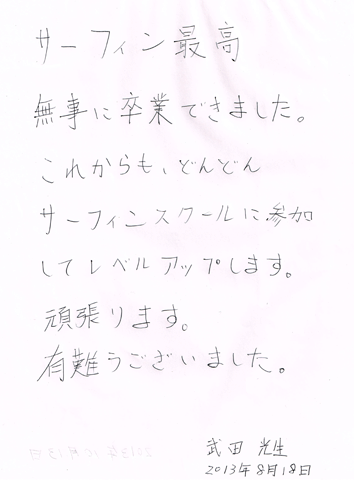 サーフィン最高
無事に卒業できました。
これからも、どんどん
サーフィンスクールに参加
してレベルアップします。
頑張ります。
有難うございました。
武田 光生
2013年8月18日